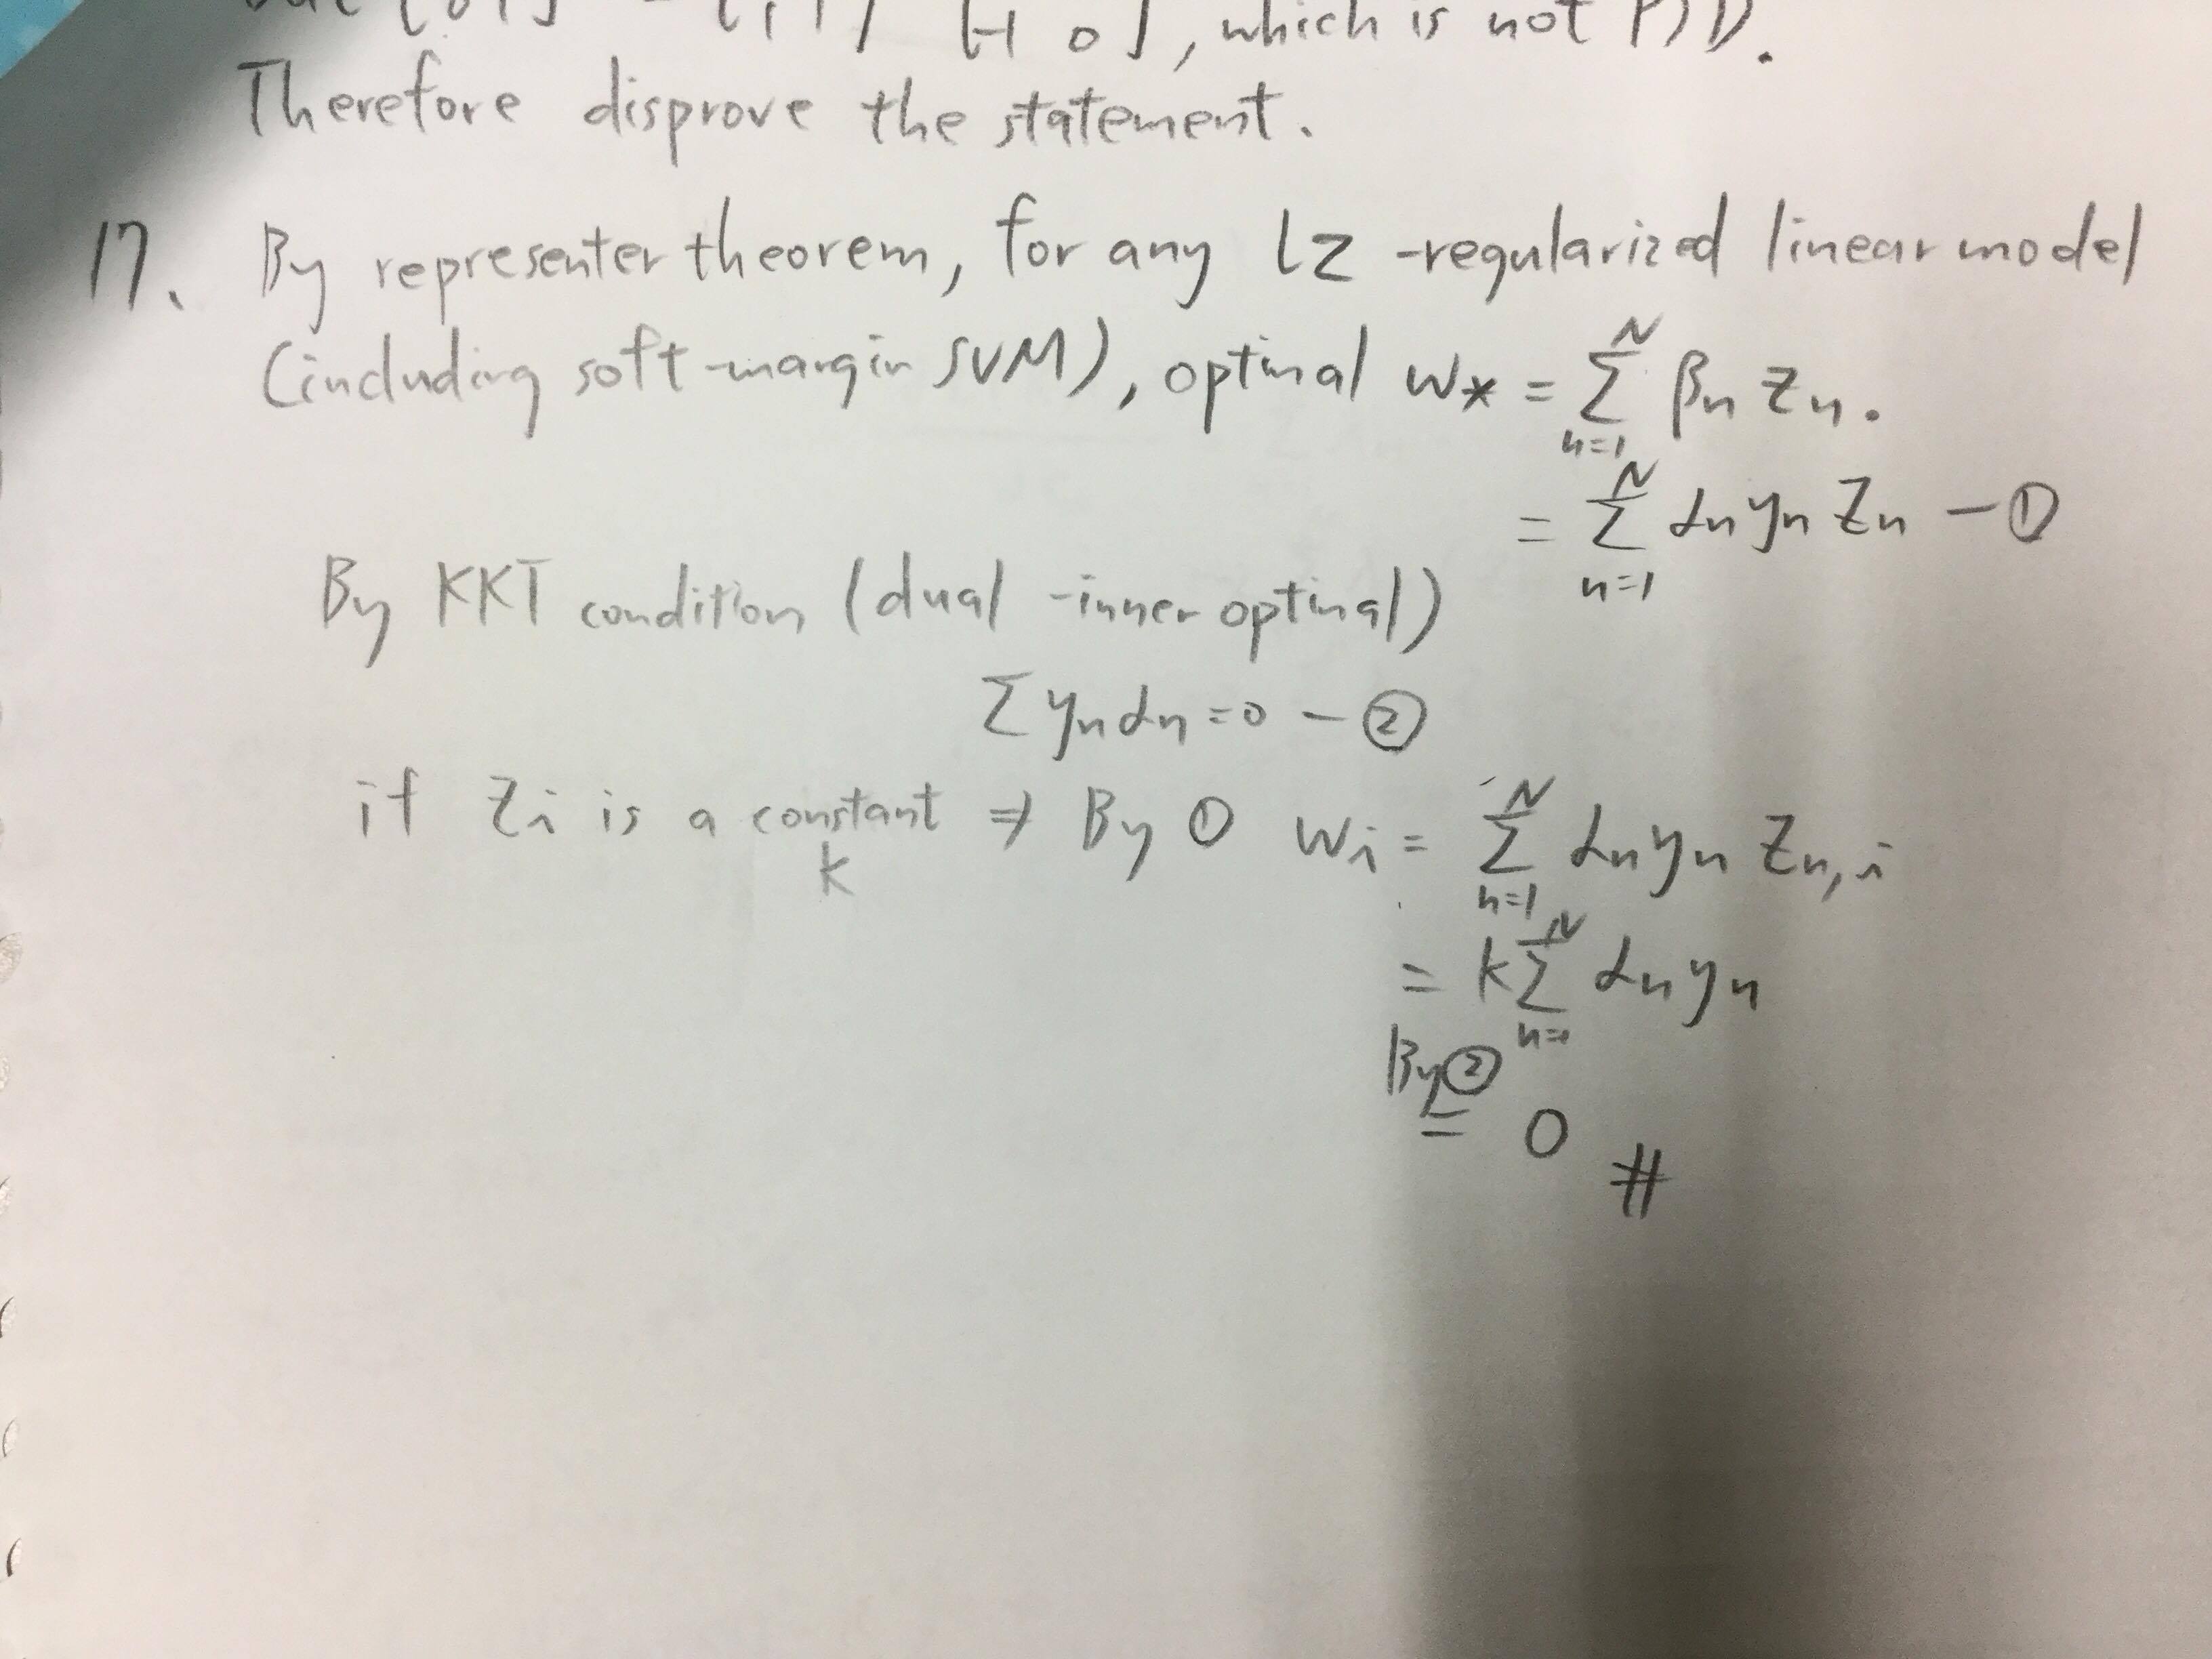 [-1 0], which is not PSD.
Therefore disprove the statement.
17. By representer theorem, for any L2 -regularized linear model
(including soft-margin SVM), optimal w* = Σ_{n=1}^{N} βn zn.
= Σ_{n=1}^{N} αn yn Zn – ①
By KKT condition (dual -inner optimal)
Σ yn αn = 0 – ②
if Zi is a constant ⇒ By ① wi = Σ_{n=1}^{N} αn yn Zn,i
k
= k Σ_{n=1}^{N} αn yn
By ②
= 0 #